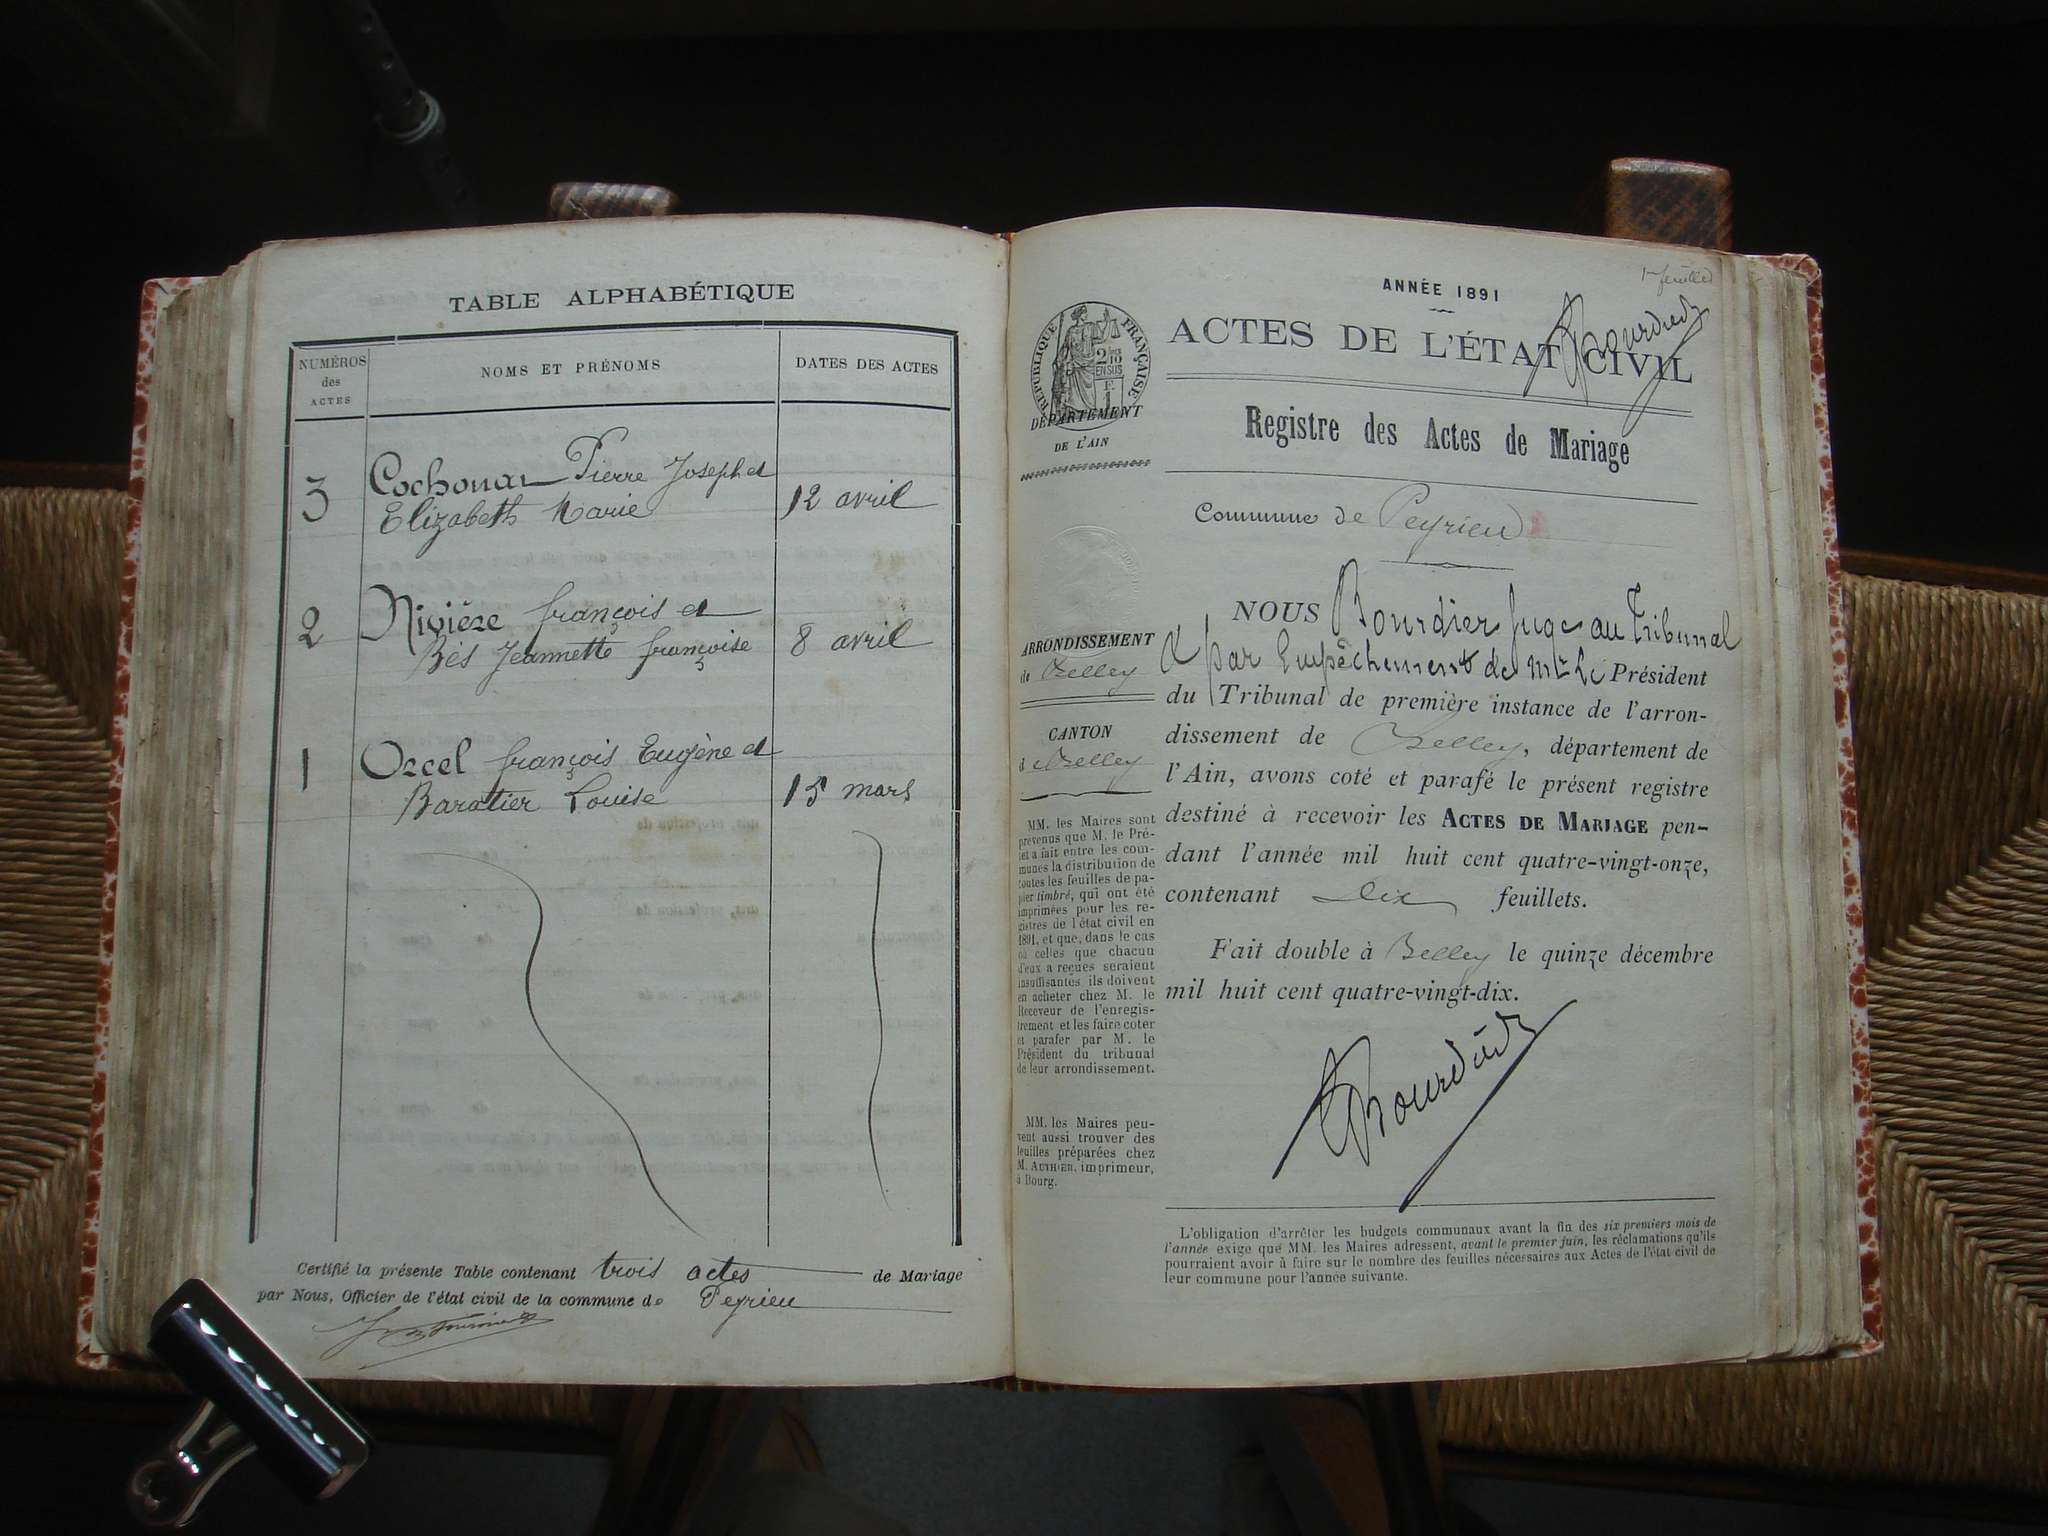 TABLE ALPHABÉTIQUE
NUMÉROS des ACTES
NOMS ET PRÉNOMS
DATES DES ACTES
3 Cochonat Pierre Joseph et
Elizabeth Marie 12 avril
2 Nivière françois et
Bès Jeannette françoise 8 avril
1 Orcel françois Eugène et
Baratier Louise 15 mars
Certifié la présente Table contenant trois actes de Mariage
par Nous, Officier de l'état civil de la commune de Peyrieu
1er feuillet
ANNÉE 1891
Bourdier
ACTES DE L'ÉTAT CIVIL
RÉPUBLIQUE FRANÇAISE
2/10 EN SUS
DÉPARTEMENT
DE L'AIN
Registre des Actes de Mariage
Commune de Peyrieu
ARRONDISSEMENT
de Belley
CANTON
d Belley
MM. les Maires sont
prévenus que M. le Pré-
fet a fait entre les com-
munes la distribution de
toutes les feuilles de pa-
pier timbré, qui ont été
imprimées pour les re-
gistres de l'état civil en
1891, et que, dans le cas
où celles que chacun
d'eux a reçues seraient
insuffisantes ils doivent
en acheter chez M. le
Receveur de l'enregis-
trement et les faire coter
et parafer par M. le
Président du tribunal
de leur arrondissement.
MM. les Maires peu-
vent aussi trouver des
feuilles préparées chez
M. AUTHIER, imprimeur,
à Bourg.
NOUS Bourdier Juge au Tribunal
& par Empêchement de Mr Le Président
du Tribunal de première instance de l'arron-
dissement de Belley, département de
l'Ain, avons coté et parafé le présent registre
destiné à recevoir les ACTES DE MARIAGE pen-
dant l'année mil huit cent quatre-vingt-onze,
contenant dix feuillets.
Fait double à Belley le quinze décembre
mil huit cent quatre-vingt-dix.
Bourdier
L'obligation d'arrêter les budgets communaux avant la fin des six premiers mois de
l'année exige que MM. les Maires adressent, avant le premier juin, les réclamations qu'ils
pourraient avoir à faire sur le nombre des feuilles nécessaires aux Actes de l'état civil de
leur commune pour l'année suivante.